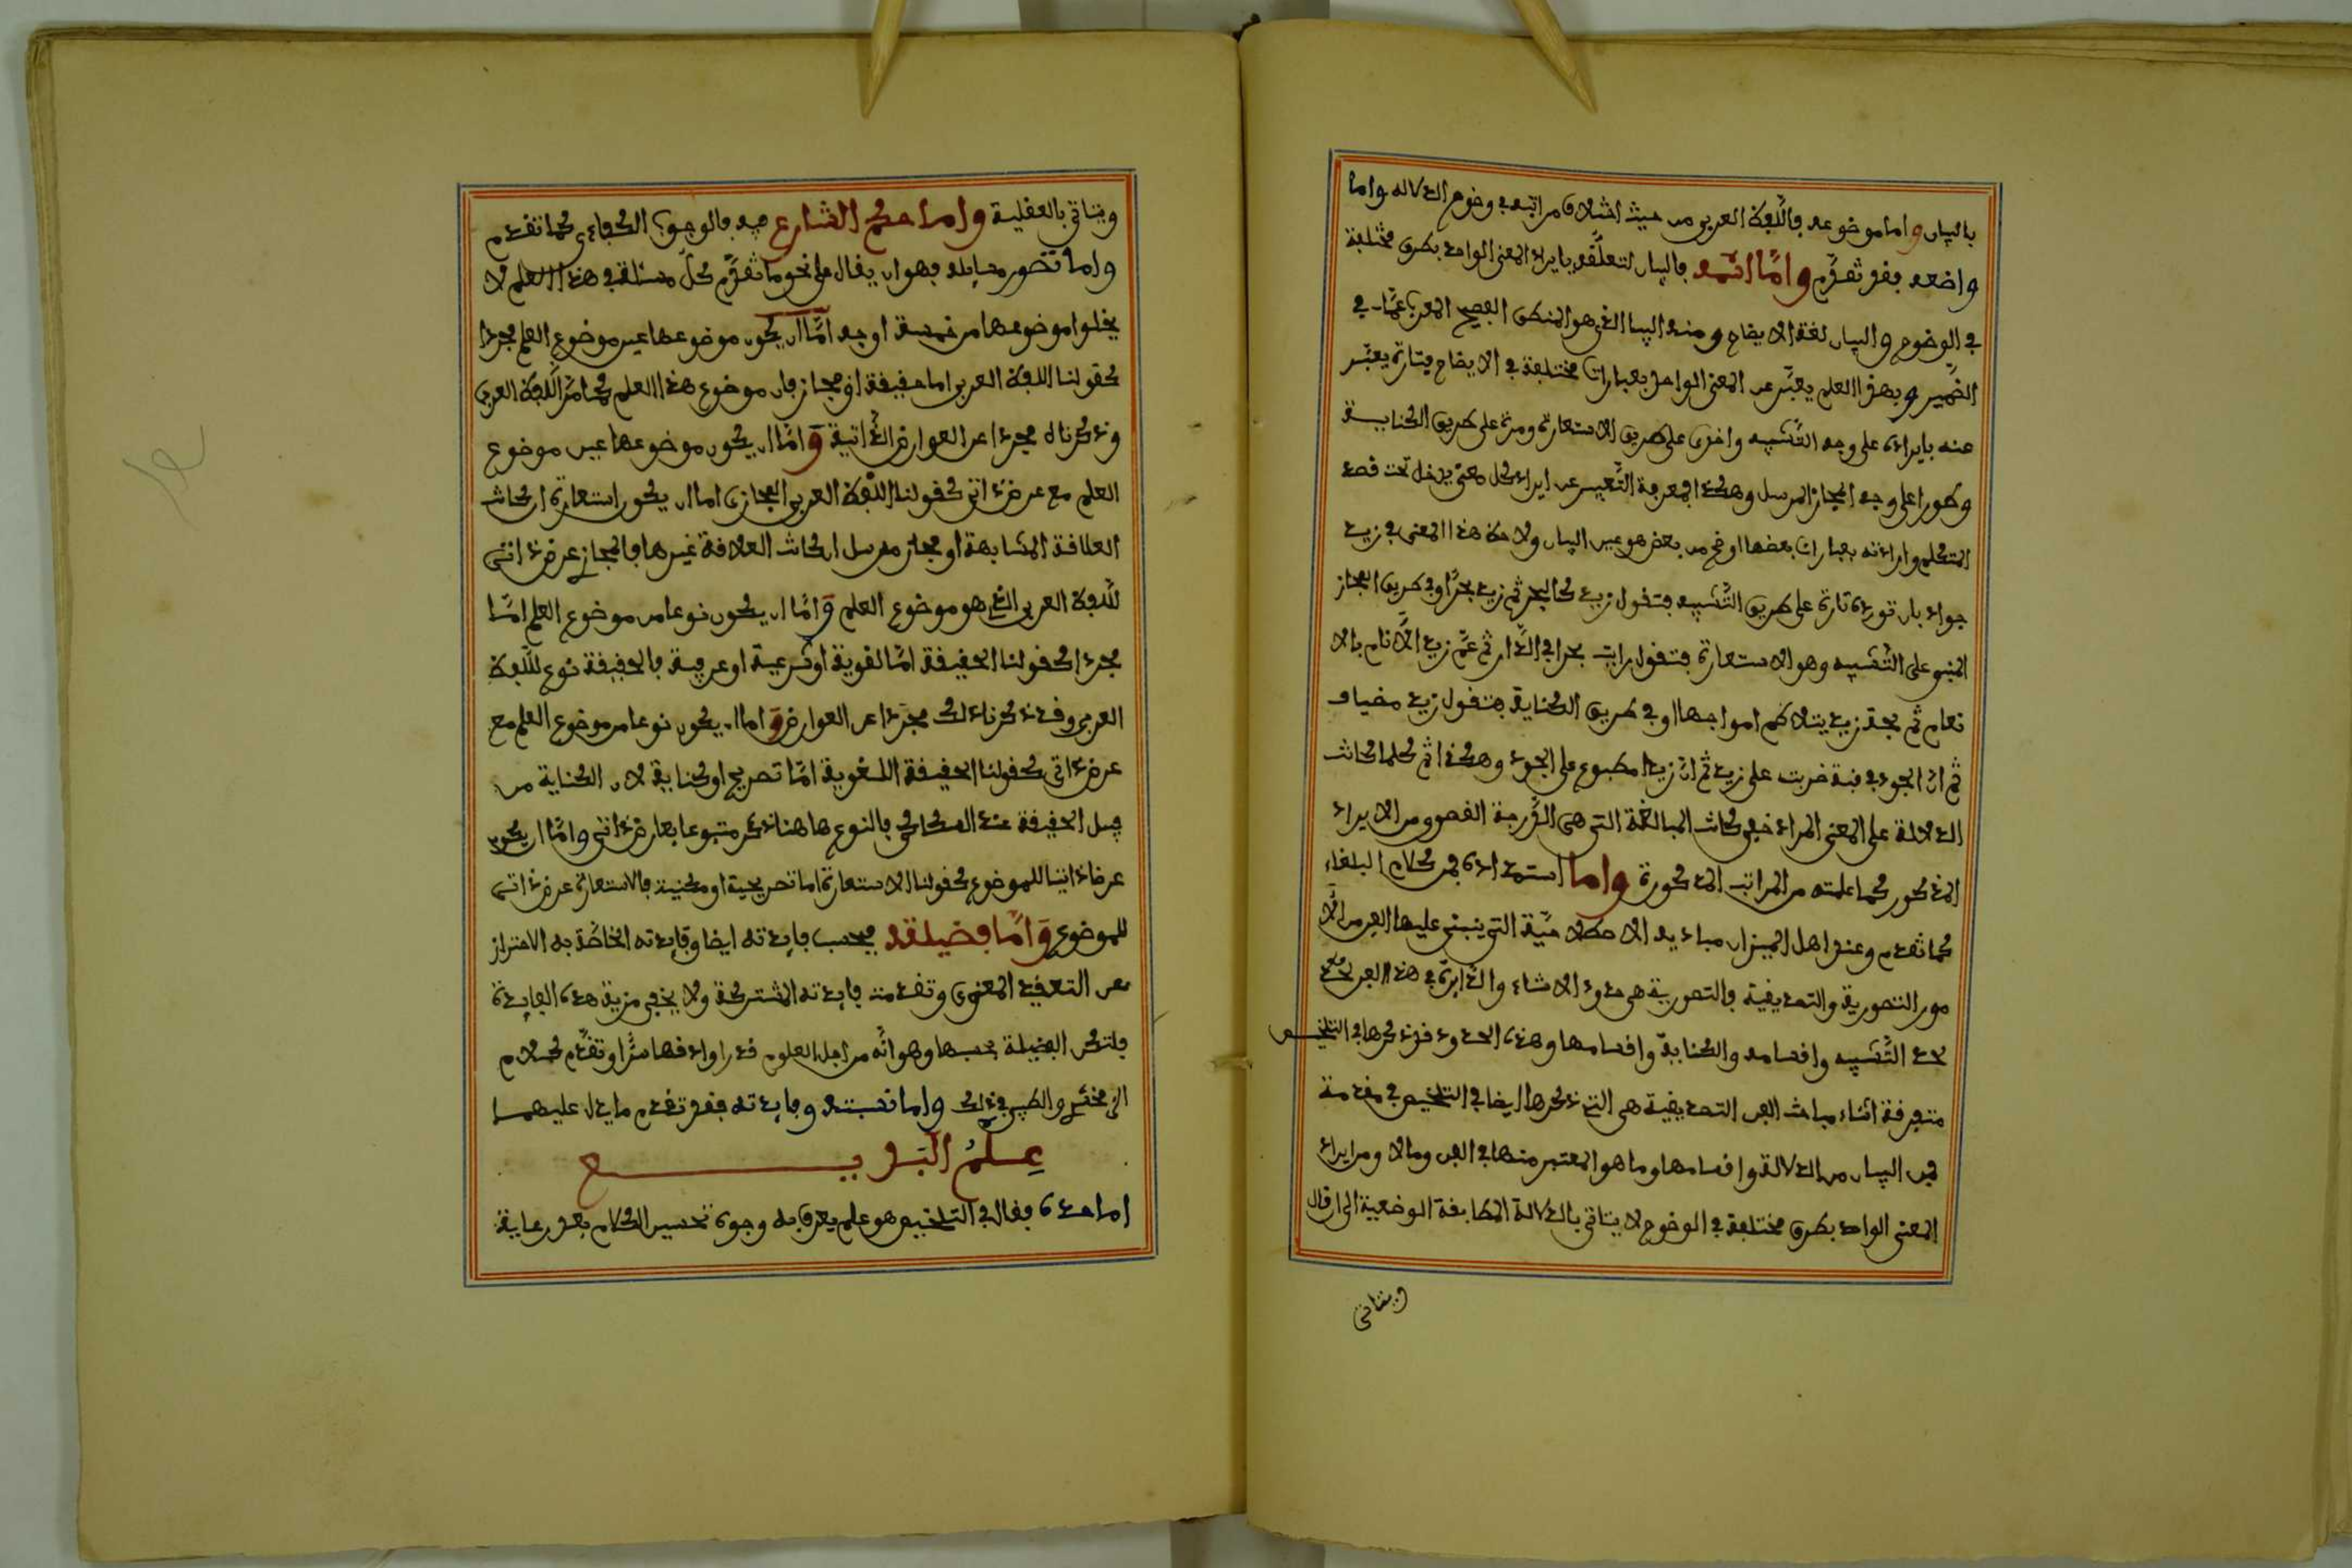 بالبيان واما موضوعه فاللّفظ العربي من حيث اختلاف مراتبه في وضوح الدلالة واما
واضعه فقد تقدّم وامّا اسمه فالبيان لتعلّقه بايراد المعنى الواحد بطرق مختلفة
في الوضوح والبيان لغة الايضاح ومنه البيان الذي هو المنطق الفصيح المعرب عمّا في
الضّمير وبهذا العلم يعبّر عن المعنى الواحد بعبارات مختلفة في الايضاح فتارة يعبّر
عنه بايراده على وجه التّشبيه واخرى على طريق الاستعارة ومرة على طريق الكناية
وطورا على وجه المجاز المرسل وهكذا فمعرفة التّعبير عن ايراد كل معنى يدخل تحت قصد
المتكلم وارادته بعبارات بعضها اوضح من بعض هو عين البيان ولاحظ هذا المعنى في زيد
جواد بان تورده تارة على طريق التّشبيه فتقول زيد كالبحر ثم زيد بحر او في طريق المجاز
المبنو على التّشبيه وهو الاستعارة فتقول رايت بحرا في الدّار ثم عمّ زيد الانام بالا
نعام ثم لجة زيد تتلاطم امواجها او في طريق الكناية فتقول زيد مضياف
ثم انّ الجود في قبة ضربت على زيد ثم انّ زيدا مطبوع على الجود وهكذا ثم كلما كانت
الدلالة على المعنى المراد خفي كانت المبالغة التي هي الدّرجة القصوو من الايراد
المذكور كما علمته من المراتب المذكورة واما استمداده فمن كلام البلغاء
كما تقدم وعند اهل الميزان مباديه الاصطلاحيّة التي ينبني عليها الفن من الا
مور التصورية والتصديقية فالتصورية هي حدود الاشياء الدايرة في هذا الفن كحد
حد التّشبيه واقسامه والكناية واقسامها وهذه الحدود قد ذكرها في التلخيص
متفرقة اثناء مباحث الفن التصديقية هي التي ذكرها ايضا في التلخيص في مقدمة
فن البيان من الدلالة واقسامها وما هو المعتبر منها في الفن وما لا ومن ايراد
المعنى الواحد بطرق مختلفة في الوضوح لا يتاتى بالدلالة المطابقة الوضعية الى ان قال
ويتاتى
ويتاتى بالعقلية واما حكم الشارع فيه فالوجوب الكفاءي كما تقدم
واما تصور مسايله فهو ان يقال على نحو ما تقدّم كلّ مسئلة في هذا العلم لا
يخلوا موضوعها من خمسة اوجه امّا ان يكون موضوعها عين موضوع العلم مجردا
كقولنا اللفظ العربي اما حقيقة او مجاز فان موضوع هذا العلم كما مرّ اللّفظ العربي
وذكرناه مجردا عن العوارض الذّاتية وامّا ان يكون موضوعها عين موضوع
العلم مع عرض ذاتي كقولنا اللّفظ العربي المجازي اما ان يكون استعارة ان كانت
العلاقة المشابهة او مجاز مرسل ان كانت العلاقة غيرها فالمجاز عرض ذاتي
للّفظ العربي الذي هو موضوع العلم وامّا ان يكون نوعا من موضوع العلم امّا
مجردا كقولنا الحقيقة امّا لغوية او شرعية او عرفية فالحقيقة نوع للّفظ
العربي وقد ذكرناه لك مجرّدا عن العوارض واما ان يكون نوعا من موضوع العلم مع
عرض ذاتي كقولنا الحقيقة اللغوية امّا تصريح او كناية لان الكناية من
قبيل الحقيقة عند السكاكي فالنوع هاهنا ذكر متبوعا بعارض ذاتي وامّا ان يكون
عرضا ذاتيا للموضوع كقولنا الاستعارة اما تصريحية او مكنية فالاستعارة عرض ذاتي
للموضوع وامّا فضيلته فبحسب فايدته ايضا وفايدته الخاصّة به الاحتراز
عن التعقيد المعنوي وتقدمت فايدته المشتركة ولا يخفى مزية هذه الفايدة
فلتكن الفضيلة بحسبها وهو انّه من اجل العلوم قدرا وادقها سرّا وتقدّم كلام
الزمخشري والطيبي في ذلك واما نسبته وفايدته فقد تقدم ما يدل عليهما
عِلمُ البَديع
اما حده فقال في التلخيص هو علم يعرف به وجوه تحسين الكلام بعد رعاية